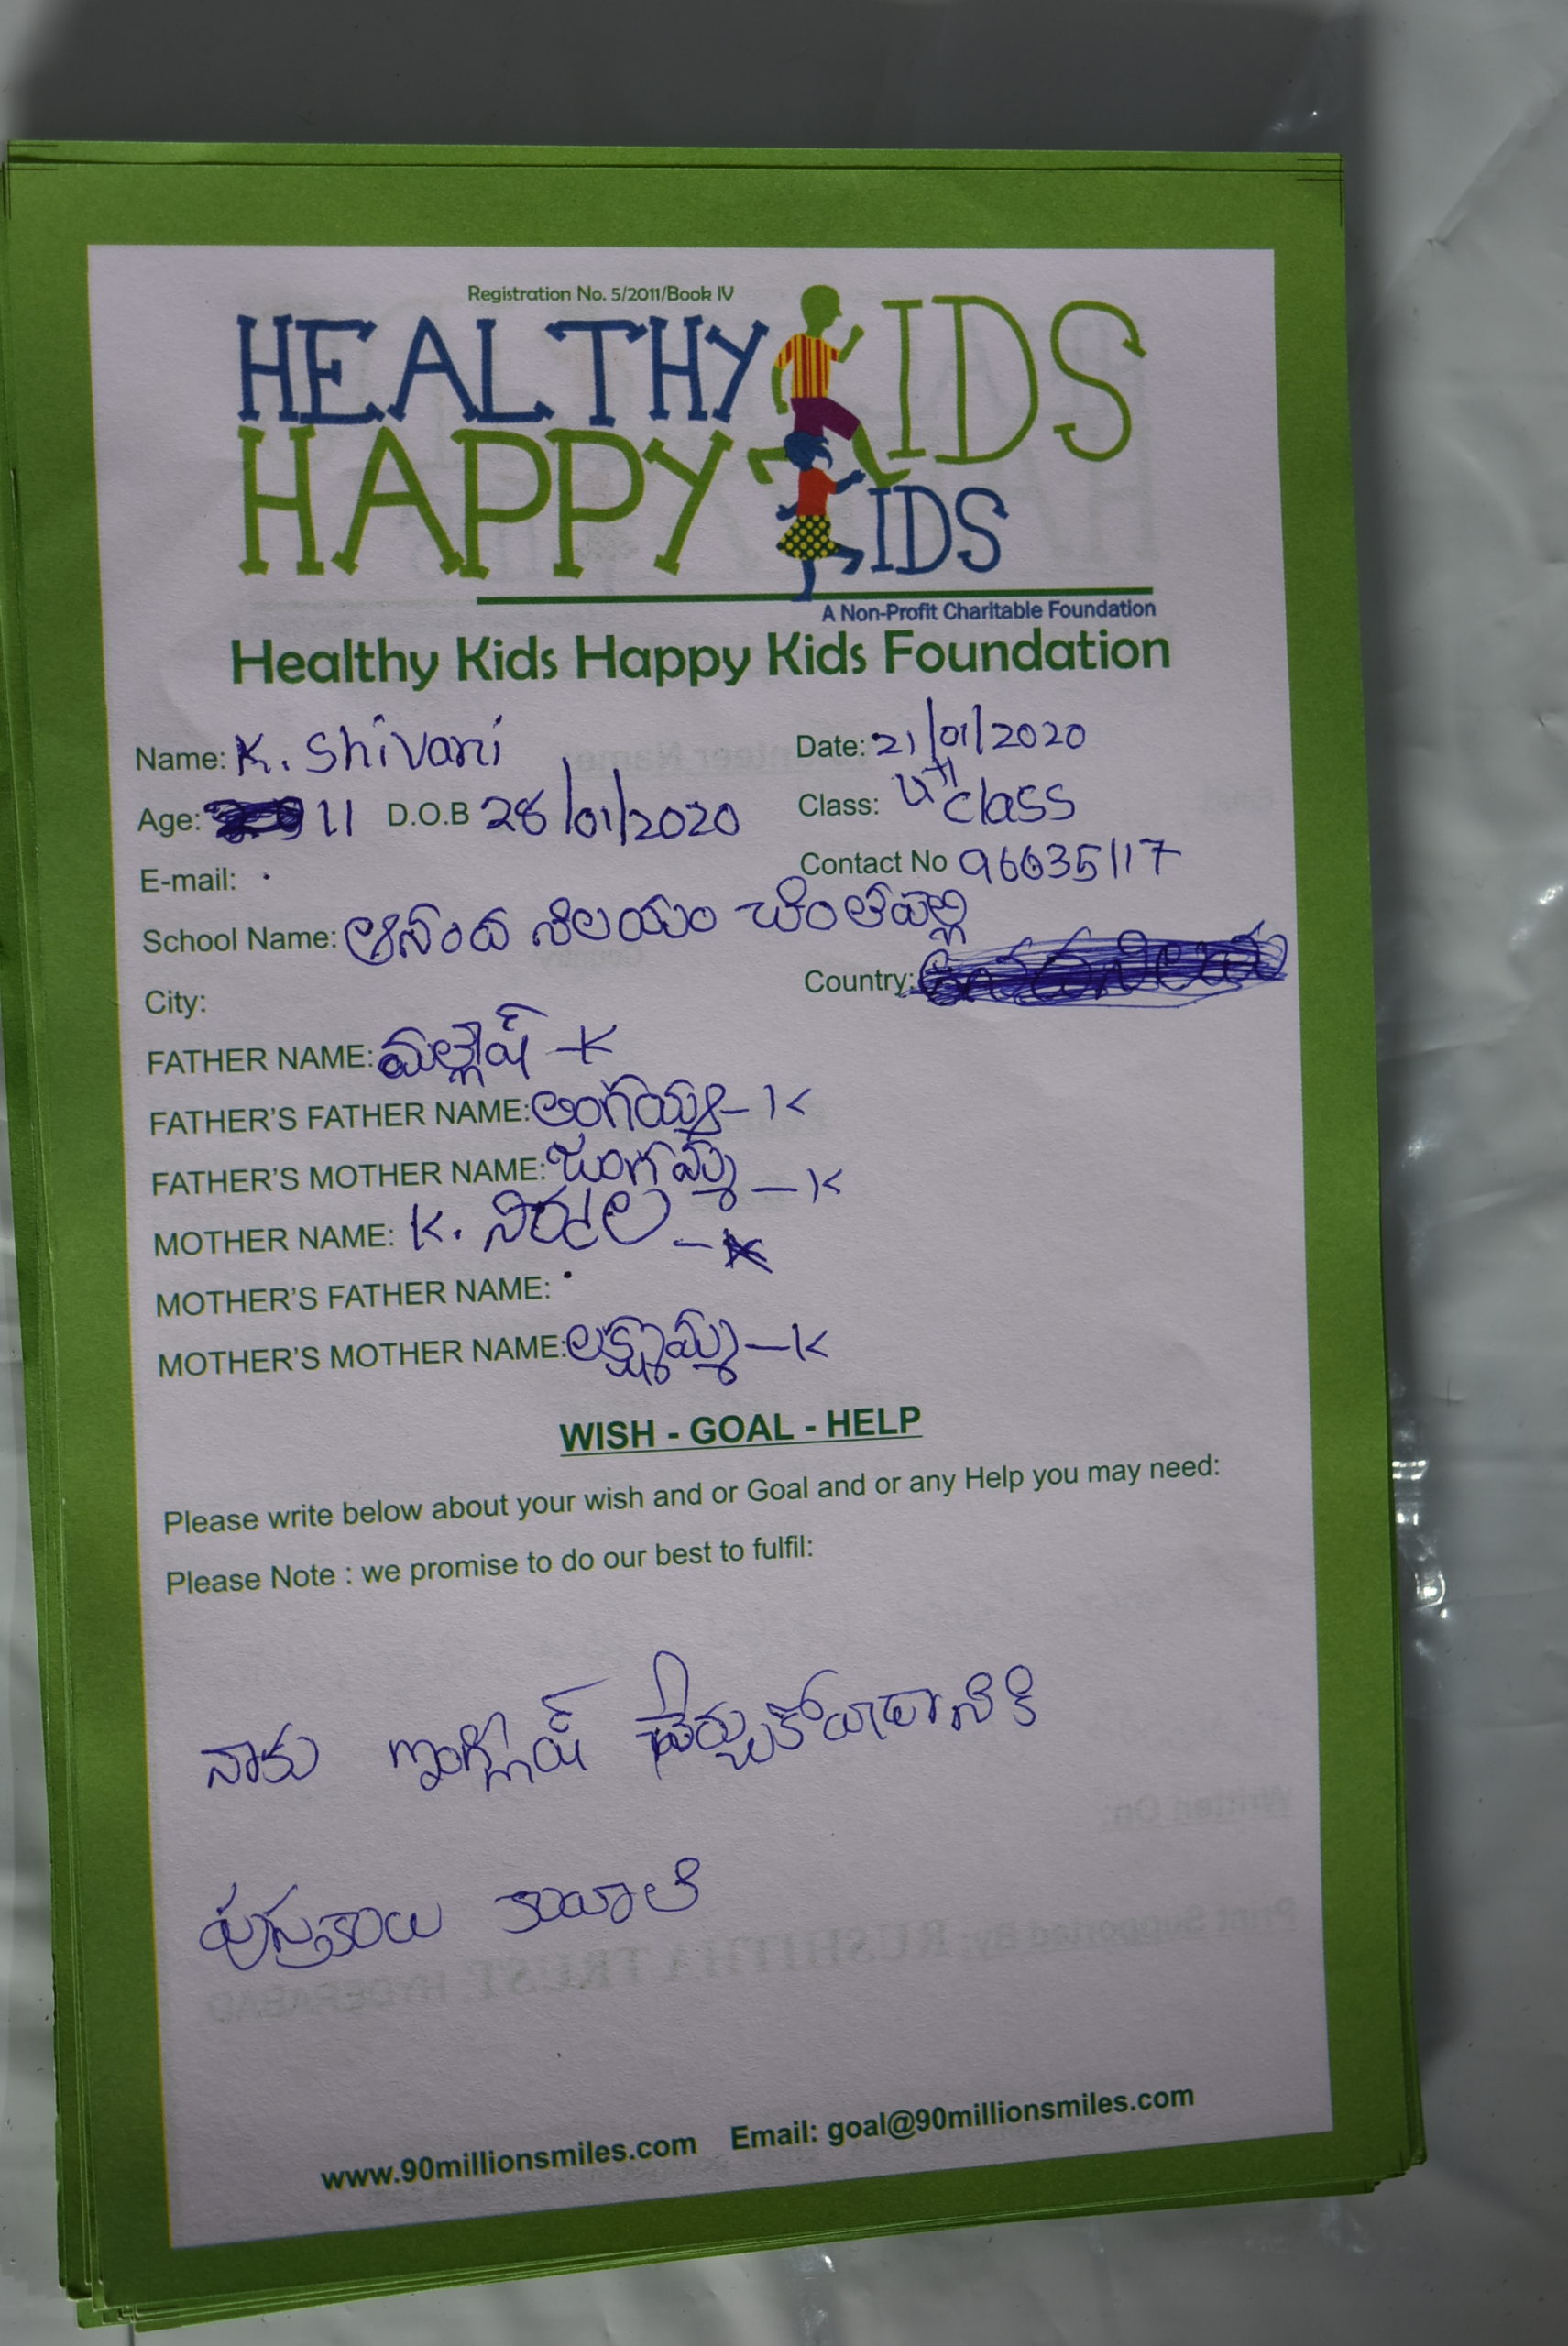 Registration No. 5/2011/Book IV
HEALTHY KIDS
HAPPY KIDS
A Non-Profit Charitable Foundation
Healthy Kids Happy Kids Foundation
Name: K. Shivani Date: 21/01/2020
Age: 11 D.O.B 28/01/2020 Class: 4th class
E-mail: Contact No 96635117
School Name: ఆనంద నిలయం చింతపల్లి
City: Country:
FATHER NAME: మల్లేష్ - K
FATHER'S FATHER NAME: అంగయ్య - K
FATHER'S MOTHER NAME: జంగమ్మ - K
MOTHER NAME: K. నిర్మల -
MOTHER'S FATHER NAME:
MOTHER'S MOTHER NAME: లక్ష్మమ్మ - K
WISH - GOAL - HELP
Please write below about your wish and or Goal and or any Help you may need:
Please Note : we promise to do our best to fulfil:
నాకు ఇంగ్లీష్ నేర్చుకోవడానికి
పుస్తకాలు కావాలి
www.90millionsmiles.com Email: goal@90millionsmiles.com